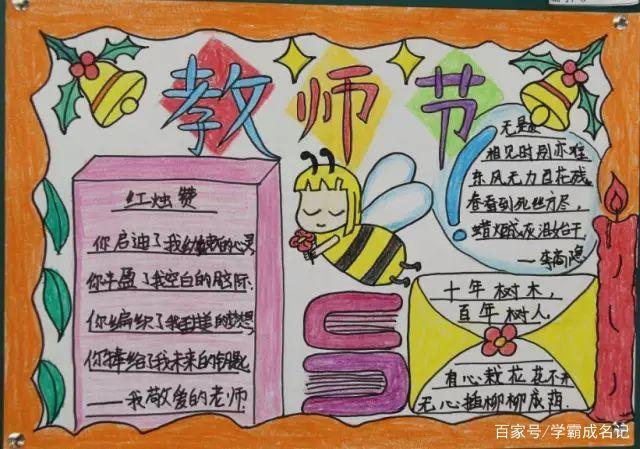 教师节
红烛赞
你启迪了我幼稚的心灵
你丰盈了我空白的脑际
你编织了我甜美的梦想
你捧给了我未来的钥匙
——我敬爱的老师
无题
相见时别亦难
东风无力百花残
春蚕到死丝方尽,
蜡炬成灰泪始干
——李商隐
十年树木,
百年树人
有心栽花花不开
无心插柳柳成荫.
百家号/学霸成名记